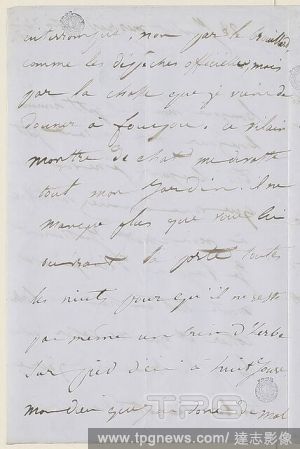 interrompue, non par le brouillard
comme les dépêches officielles, mais
par la chasse que je viens de
donner à fouyou. ce vilain
monstre de chat me dévaste
tout mon jardin. il ne
manque plus que vous lui
ouvrant la porte toutes
les nuits pour qu'il ne reste
pas même un brin d'herbe
sur pied d'ici à huit jours
mon dieu que de mal
TPG
IMAGES
www.tpgnews.com / 達志影像